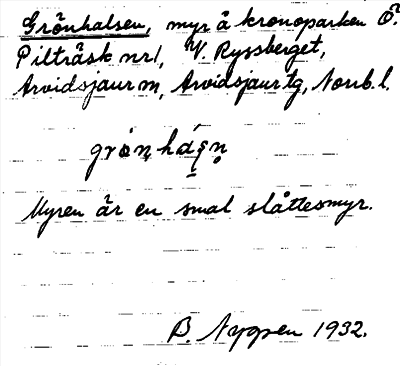 Grönhalsen, myr å kronoparken Ö.
Pilträsk nr 1, V. Ryssberget,
Arvidsjaur sn, Arvidsjaur tg, Norrb. l.
Myren är en smal slåttesmyr.
B. 1932.